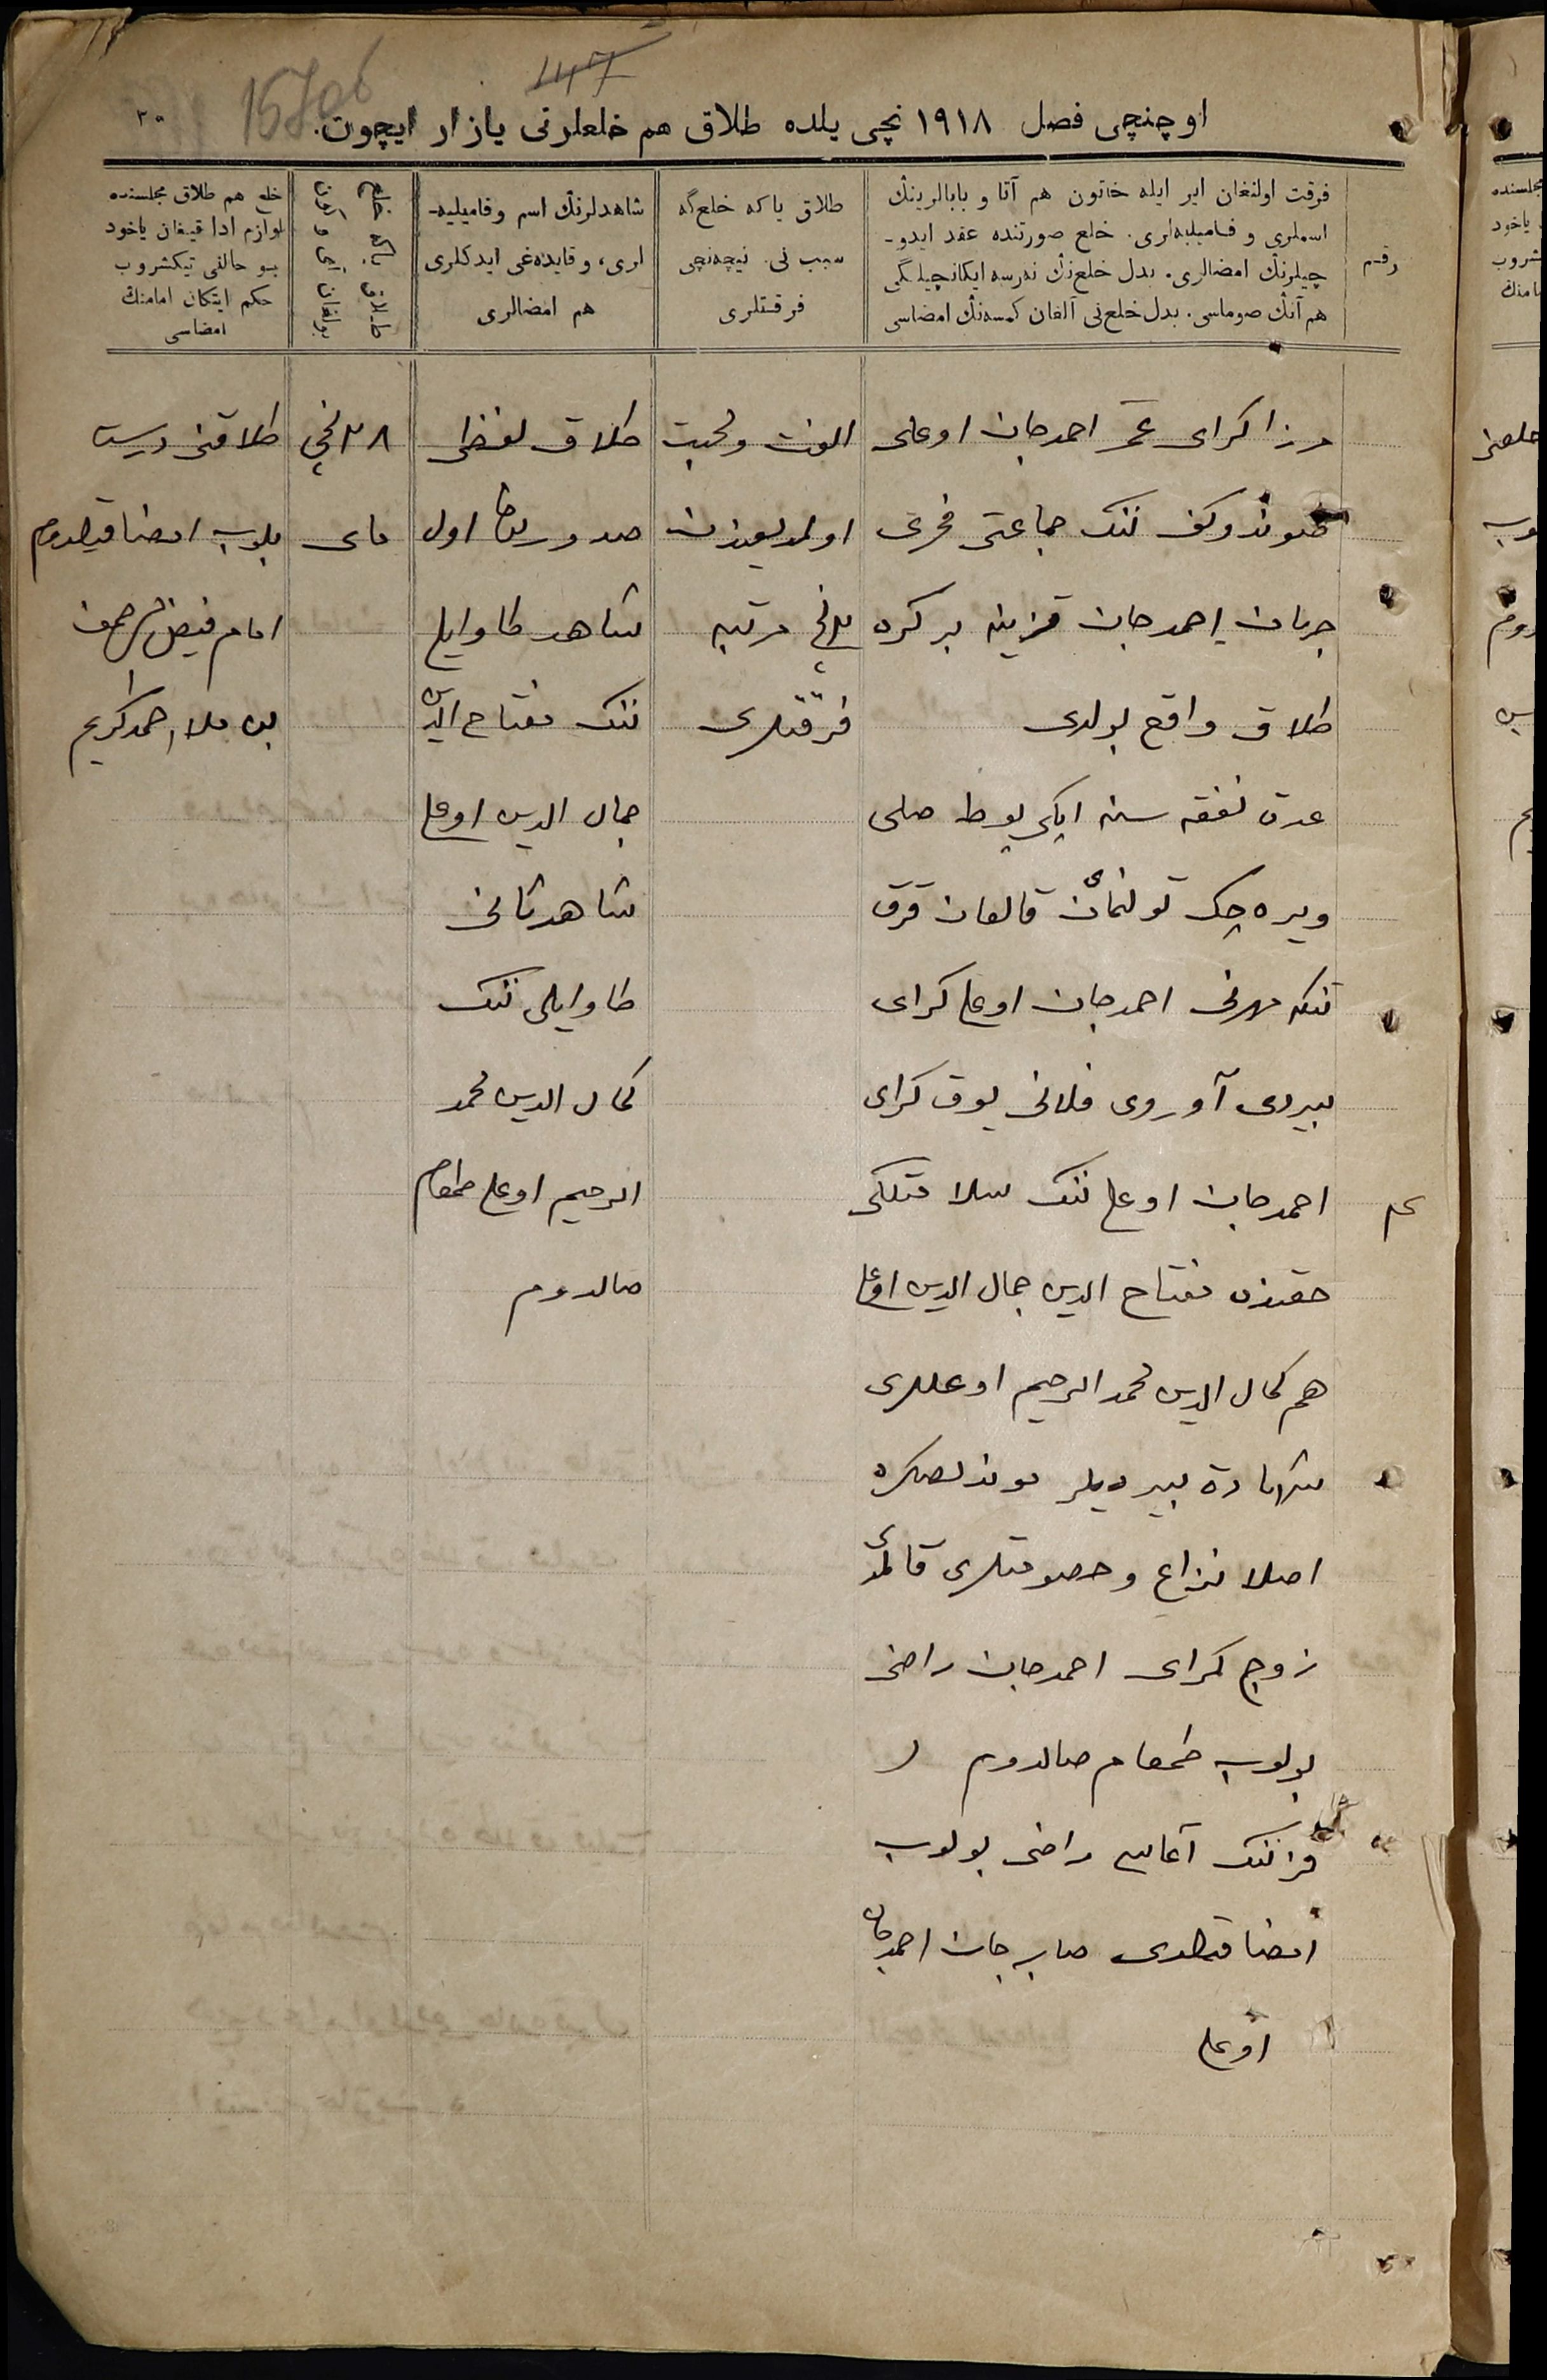 147
اوچنچی فصل ۱۹۱۸ نچی یلده طلاق هم خلعلرنی یازار ایچون.
۳۰
رقم
فرقت اولنغان ایر ایله خاتون هم آتا و بابالرینڭ
اسملری و فامیلیه‌لری. خلع صورتنده عقد ایدو-
چیلرنڭ امضالری. بدل خلع‌نڭ نه‌رسه ایکانچیلگی
هم آنڭ صوماسی. بدل خلع‌نی آلغان کمسه‌نڭ امضاسی
طلاق یا که خلع‌گه
سبب نی. نیچه‌نچی
فرقتلری
شاهدلرنڭ اسم و فامیلیه-
لری، و قایده‌غی ایدکلری
هم امضالری
طلاق یا که خلع
بولغان آی و کون
خلع هم طلاق مجلسنده
لوازم ادا قیغان یاخود
بو حالنی تیکشروب
حکم ایتکان امامنڭ
امضاسی
مرزا کرای احمدجان اوغلی
ننک جماعتی فخری
جهان احمدجان قزینه بر کره
طلاق واقع بولدی
عدت نفقه سنه ایکی پوط صلی
ویره‌چک تولنمائن قالغان قرق
تنکه مهرنی احمدجان اوغلی کرای
بیردی آوروی فلانی یوق کرای
احمدجان اوغلی ننک سلامتلکی
حقنده مفتاح الدین جمال الدین اوغلی
هم کمال الدین محمد الرحیم اوغللری
شهادة بیردیلر موندنصکره
اصلا نزاع و خصومتلری قالمدی
زوج کرای احمدجان راضی
بولوب طمغام صالدوم
قزننک آغاسی راضی بولوب
امضا قیلدی صابرجان احمدجان
اوغلی
الفت و محبت
اولمدیغیندن
نچی مرتبه
فرقتلری
طلاق لفظی
صدورینا اول
شاهد طاوایلی
ننک مفتاح الدین
جمال الدین اوغلی
شاهد ثانی
طاوایلی ننک
کمال الدین محمد
الرحیم اوغلی طمغام
صالدوم
۲۸ نچی
مای
طلاقنی درست
بلوب امضا قیلدوم
امام
بن ملا احمدکریم